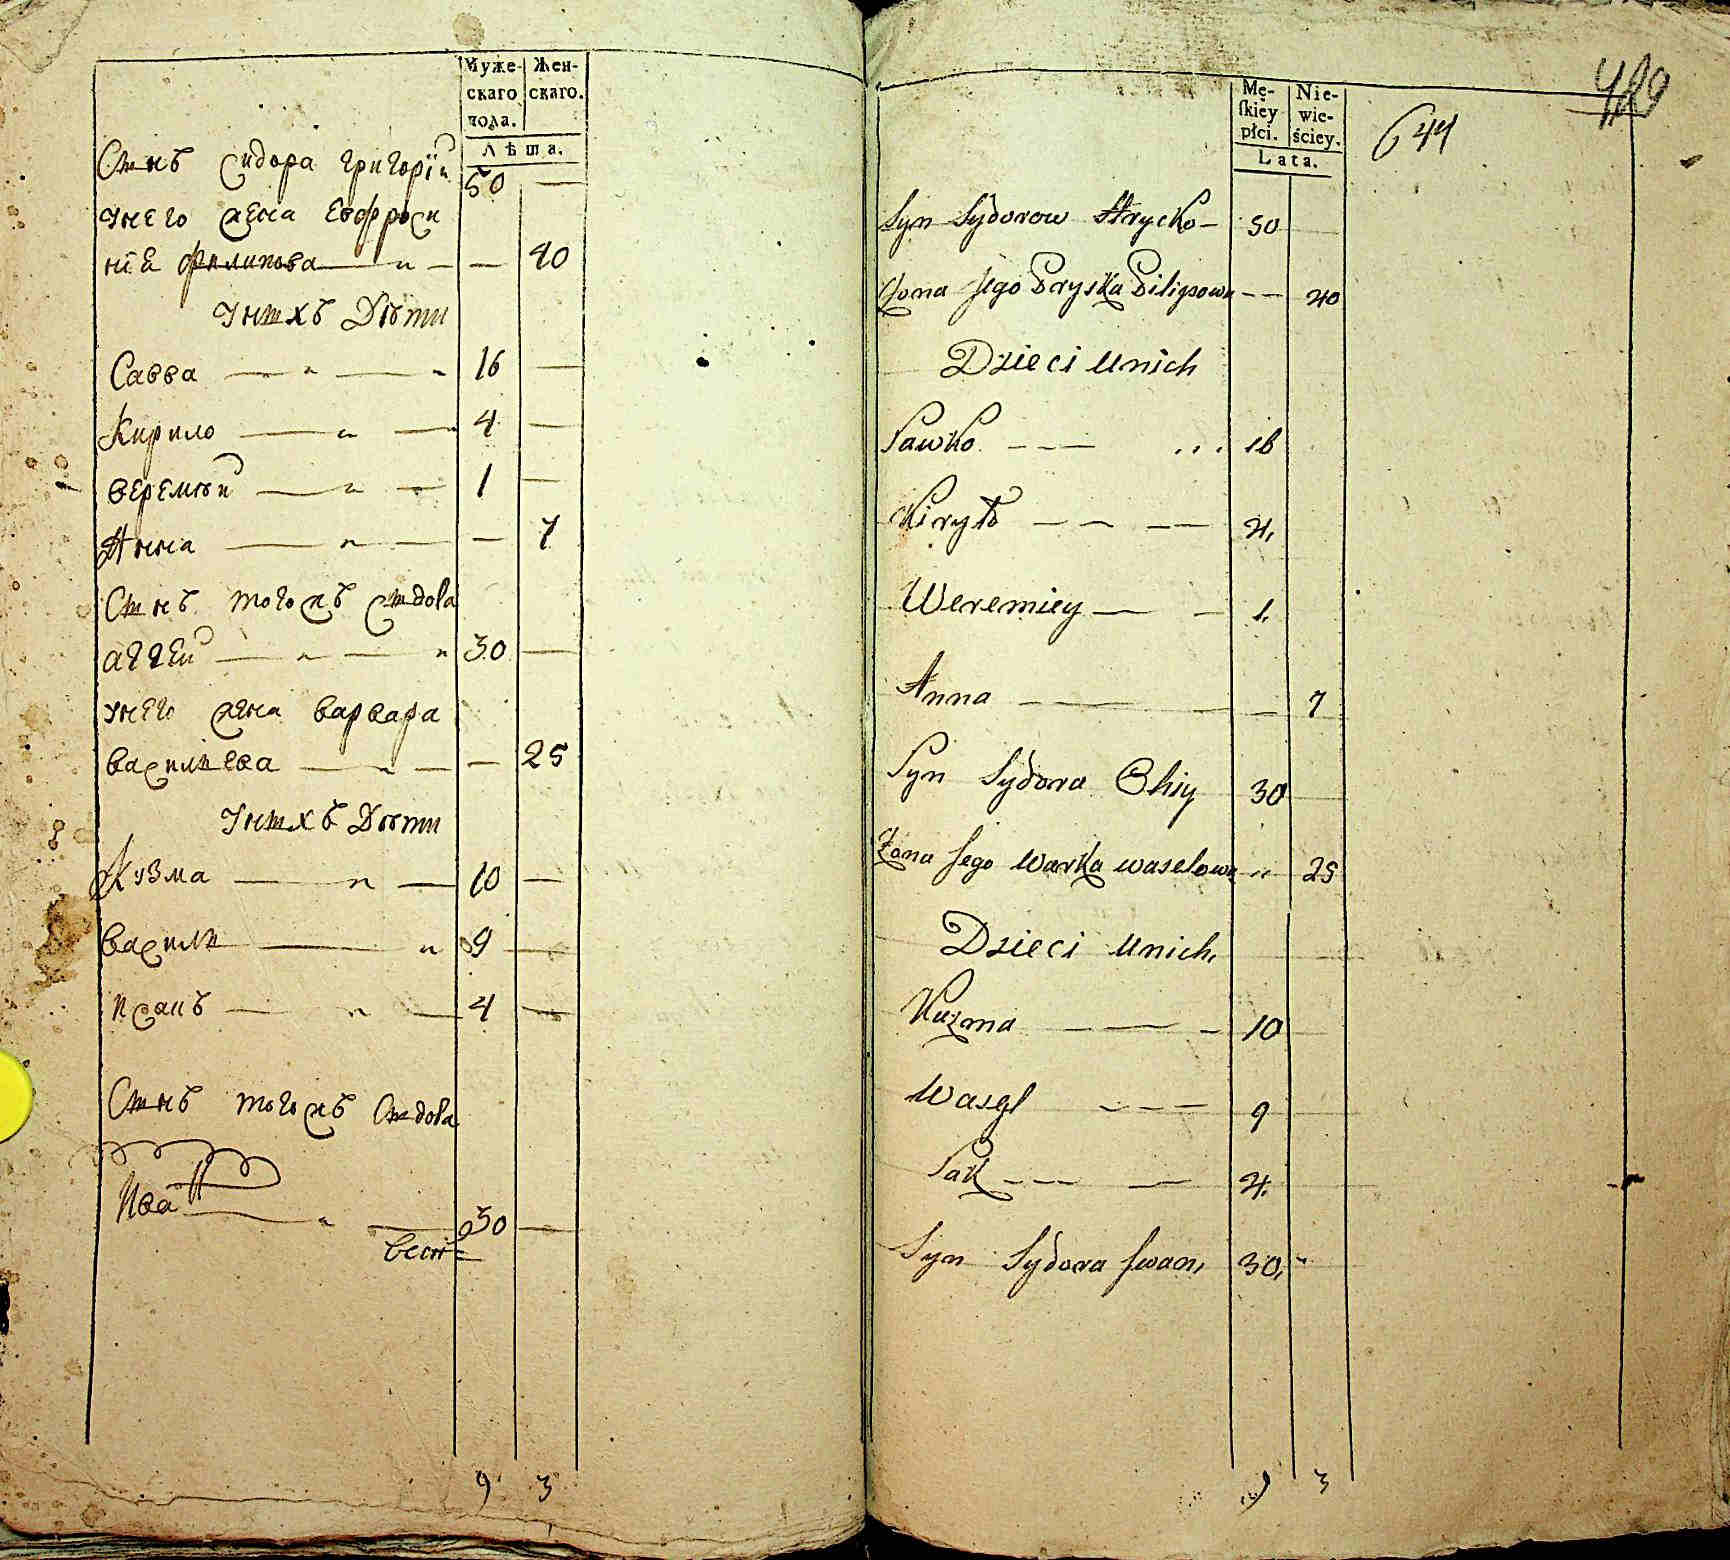 Муже- Жен-
скаго скаго.
пола.
Лѣта.
Сынъ Сидора григорїй 50 —
унего жена Евфроси
нїя филипова — „ — — 40
унихъ Дѣти
Савва — „ — „ 16 —
Кирило — „ — 4 —
веремѣй — „ — 1 —
Анна — „ — — 7
Сынъ тогожъ Сидора
аггей — „ — „ 30 —
унего жена варвара
василиева — „ — — 25
унихъ Дѣти
Кузма — „ — 10 —
василй — „ 9 —
исакъ — „ — 4 —
Сынъ тогожъ Сидора
Иванъ — „ — 30 —
9 3
480
644
Mę- Nie-
ſkiey wie-
płci. ściey.
Lata.
Syn Sydorow Hrycko — 50 —
Żona Jego Pryska Pilipowa — — 40
Dzieci Unich
Sawko — — — ... 16
Kiryło — — — — 4.
Weremiey — — 1.
Anna — — — 7
Syn Sydora Ohiy 30 —
Żona Jego Warka waselowa „ 25
Dzieci Unich.
Kuzma — — — 10 —
Wasyl — — — 9
Sak — — — — 4.
Syn Sydora Jwan, 30. „
9 3